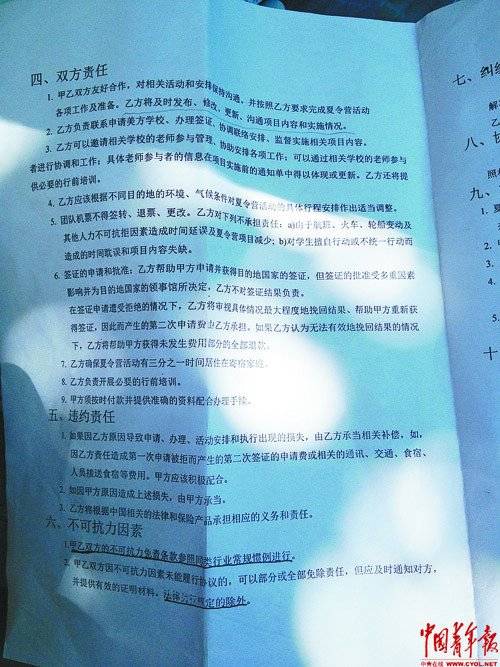 四、双方责任
1. 甲乙双方友好合作，对相关活动和安排保持沟通，并按照乙方要求完成夏令营活动
各项工作及准备。乙方将及时发布、修改、更新、沟通项目内容和实施情况。
2. 乙方负责联系申请美方学校、办理签证、协调联络安排、监督实施相关项目内容。
3. 乙方可以邀请相关学校的老师参与管理、协助安排各项工作；可以通过相关学校的老师参与
者进行协调和工作；具体老师参与者的信息在项目实施前的通知单中得以体现或更新。乙方还将提
供必要的行前培训。
4. 乙方应该根据不同目的地的环境、气候条件对夏令营活动的具体行程安排作出适当调整。
5. 团队机票不得签转、退票、更改。乙方对下列不承担责任：a)由于航班、火车、轮船变动及
其他人力不可抗拒因素造成时间延误及夏令营项目减少；b)对学生擅自行动或不统一行动而
造成的时间耽误和项目内容失缺。
6. 签证的申请和批准：乙方帮助甲方申请并获得目的地国家的签证，但签证的批准受多重因素
影响并为目的地国家的领事馆所决定，乙方不对签证结果负责。
在签证申请遭受拒绝的情况下，乙方将审视具体情况最大程度地挽回结果、帮助甲方重新获
得签证，因此而产生的第二次申请费由乙方承担，如果乙方认为无法有效地挽回结果的情况
下，乙方将帮助甲方获得未发生费用部分的全部退款。
7. 乙方确保夏令营活动有三分之一时间居住在寄宿家庭。
8. 乙方负责开展必要的行前培训。
9. 甲方须按时付款并提供准确的资料配合办理手续。
五、违约责任
1. 如果因乙方原因导致申请、办理、活动安排和执行出现的损失，由乙方承当相关补偿，如，
因乙方责任造成第一次申请被拒而产生的第二次签证的申请费或相关的通讯、交通、食宿、
人员接送食宿等费用。甲方应该积极配合。
2. 如因甲方原因造成上述损失，由甲方承当。
3. 乙方将根据中国相关的法律和保险产品承担相应的义务和责任。
六、不可抗力因素
1.甲乙双方的不可抗力免责条款参照同类行业常规惯例进行。
2. 甲乙双方因不可抗力因素未能履行协议的，可以部分或全部免除责任，但应及时通知对方，
并提供有效的证明材料。法律另有规定的除外。
七、纠纷
解
乙
八、协
照相
九、
1. 要
2.
3.
十
中国青年报
中青在线 WWW.CYOL.NET